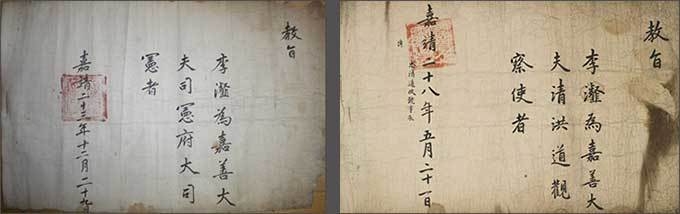 教旨
李瀣為嘉善大
夫司憲府大司
憲者
嘉靖二十三年十二月二十九日
教旨
李瀣為嘉善大
夫清洪道觀
察使者
嘉靖二十八年五月二十一日